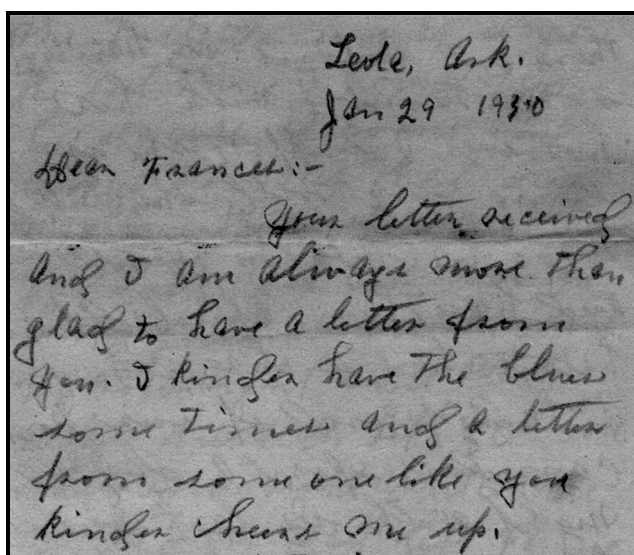 Leola, Ark.
Jan 29 1930
Dear Frances:-
Your letter received
and I am always more than
glad to have a letter from
you. I kinder have the blues
some times and a letter
from some one like you
kinder chears me up.